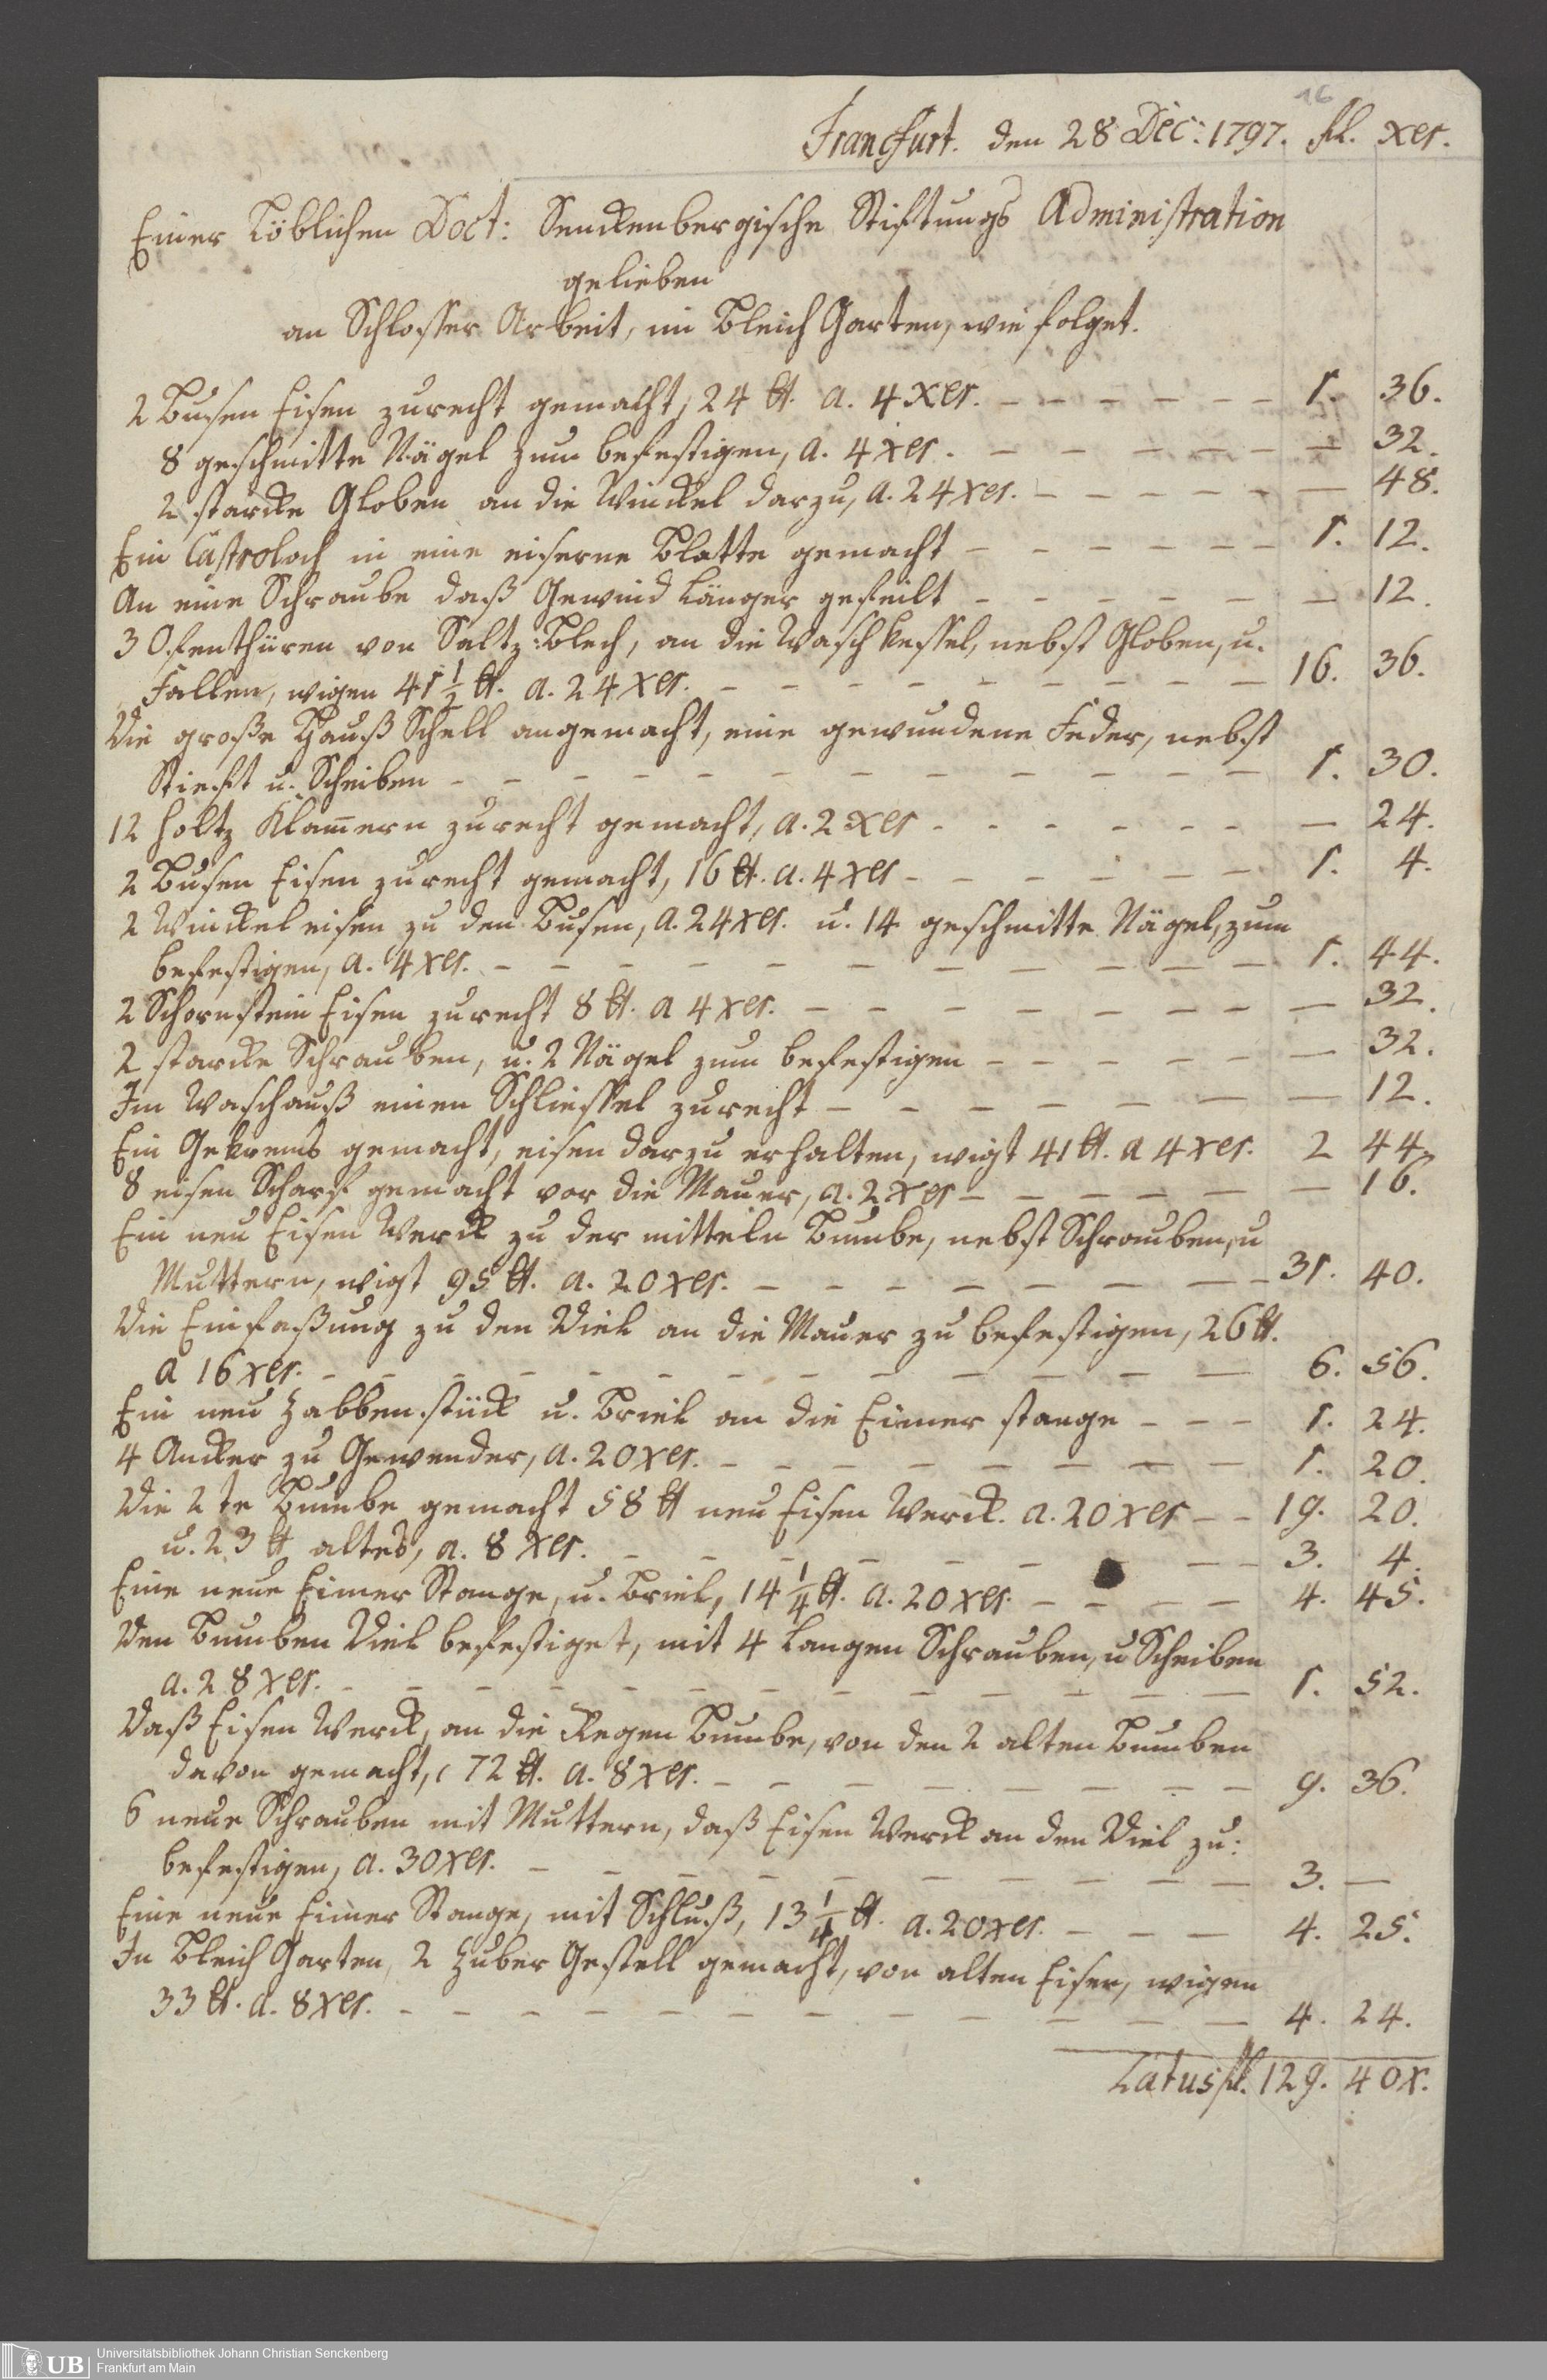 16
Francfurt. den 28 Dec: 1797. fl. xer.
Einer Löblichen Doct: Senckenbergische Stiftungs Administration
gelieben
an Schlosser Arbeit, im Bleich Garten, wie folget.
2 Busen Eisen zurecht gemacht, 24 tt. a. 4 xer. 1. 36.
8 geschmitte Nägel zum befestigen, a. 4 xer. — 32.
2 starcke Globen an die Winckel darzu, a. 24 xer. — 48.
Ein Castroloch in eine eiserne Blatte gemacht 1. 12.
An eine Schraube daß Gewind länger gefeilt — 12.
3 Ofenthüren von Saltz: Blech, an die Wasch kessel, nebst Globen, u.
Fallen, wigen 41 1/2 tt. a. 24 xer. 16. 36.
Die große Hauß Schell angemacht, eine gewundene Feder, nebst
Stieft u. Scheiben 1. 30.
12 holtz Klam̄ern zurecht gemacht, a. 2 xer — 24.
2 Busen Eisen zurecht gemacht, 16 tt. a. 4 xer 1. 4.
2 Winckel eisen zu den Busen, a. 24 xer. u. 14 geschmitte Nägel, zum
befestigen, a. 4 xer. 1. 44.
2 Schornstein Eisen zurecht 8 tt. a 4 xer. — 32.
2 starcke Schrauben, u. 2 Nägel zum befestigen — 32.
Im Waschauß einen Schliessel zurecht — 12.
Ein Gekrems gemacht, eisen darzu erhalten, wigt 41 tt. a 4 xer. 2 44.
8 eisen Scharf gemacht vor die Mauer, a. 2 xer — 16.
Ein neu Eisen Werck zu der mitteln Bumbe, nebst Schrauben, u
Muttern, wigt 95 tt. a. 20 xer. 31. 40.
Die Einfaßung zu den Diel an die Mauer zu befestigen, 26 tt.
a 16 xer. 6. 56.
Ein neu Zabbenstück u. Briel an die Eimer stange 1. 24.
4 Ancker zu Gewender, a. 20 xer. 1. 20.
Die 2te Bumbe gemacht 58 tt neu Eisen Werck. a. 20 xer 19. 20.
u. 23 tt altes, a. 8 xer. 3. 4.
Eine neue Eimer Stange, u. Briel, 14 1/4 tt. a. 20 xer. 4. 45.
Den Bumben Diel befestiget, mit 4 Langen Schrauben, u Scheiben
a. 28 xer. 1. 52.
Daß Eisen Werck, an die Regen Bumbe, von den 2 alten Bumben
davon gemacht, 72 tt. a. 8 xer. 9. 36.
6 neue Schrauben mit Muttern, daß Eisen Werck an den Diel zu:
befestigen, a. 30 xer. 3. —
Eine neue Eimer Stange, mit Schluß, 13 1/4 tt. a. 20 xer. 4. 25.
In Bleich Garten, 2 Zuber Gestell gemacht, von alten Eisen, wigen
33 tt. a. 8 xer. 4. 24.
Latus fl. 129. 40 x.
UB Universitätsbibliothek Johann Christian Senckenberg
Frankfurt am Main